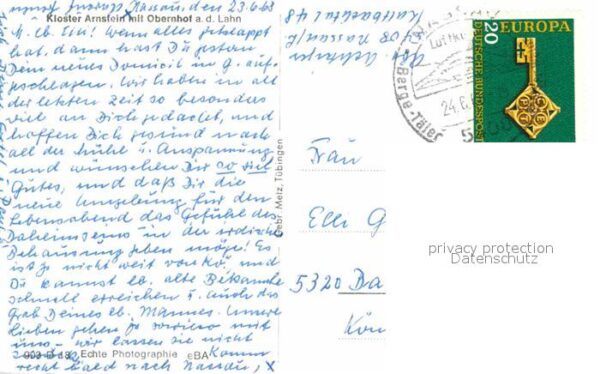 Nassau, den 23.6.68
Kloster Arnstein mit Obernhof a. d. Lahn
M. lb. Elli! Wenn alles geklappt
hat, dann hast Du gestern
Dein neues Domicil in G. aufge-
schlagen. Wir haben in all
der letzten Zeit so besonders
viel an Dich gedacht, und
hoffen Dich gesund nach
all der Mühe u. Anspannung
und wünschen Dir so viel
Gutes, und daß Dir die
neue Umgebung für den
Lebensabend das Gefühl des
Daheimseins in der irdischen
Behausung geben möge! Es
ist ja nicht weit von Kö. und
Du kannst lb. alte Bekannte
schnell erreichen u. auch das
Grab Deines lb. Mannes. Unsere
Lieben gehen ja sowieso mit
uns - wir lassen sie nicht
Komm
903 D 18 Echte Photographie eBA
recht bald nach Nassau, X
Gebr. Metz, Tübingen
5408 Nassau/L
Kaltbachtal 48
Berge-Täler
24.6.
EUROPA
20
DEUTSCHE BUNDESPOST
CEPT
Frau
Elli G
5320 Ba
Kön
privacy protection
Datenschutz